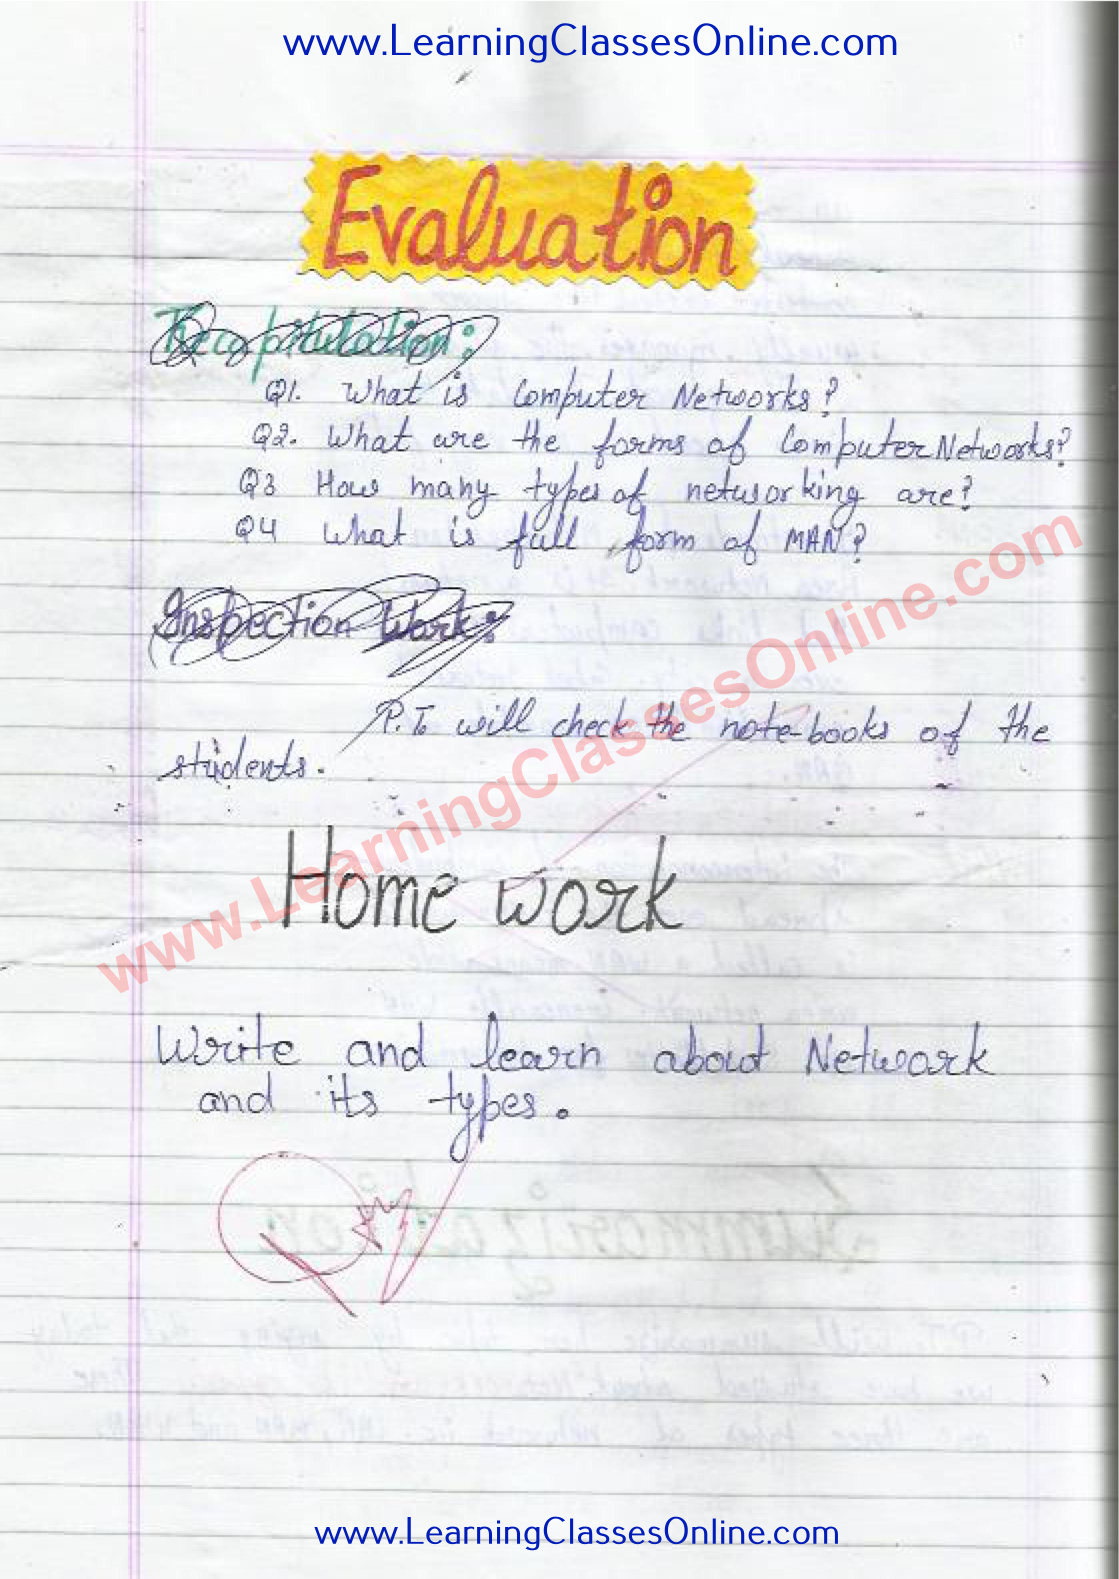 www.LearningClassesOnline.com
Evaluation
Recapitulation:
Q1. What is Computer Networks?
Q2. What are the forms of Computer Networks?
Q3 How many types of networking are?
Q4 What is full form of MAN?
Inspection Work:
P.T. will check the note-books of the
students.
www.LearningClassesOnline.com
Home work
Write and learn about Network
and its types.
www.LearningClassesOnline.com